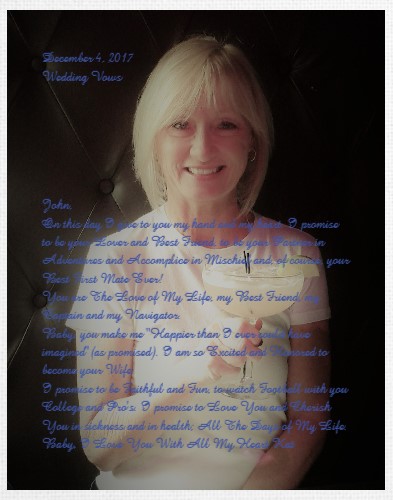 December 4, 2017
Wedding Vows
John,
On this day I give to you my hand and my heart. I promise
to be your Lover and Best Friend, to be your Partner in
Adventures and Accomplice in Mischief and, of course, your
Best First Mate Ever!
You are The Love of My Life, my Best Friend, my
Captain and my Navigator.
Baby, you make me "Happier than I ever could have
imagined" (as promised). I am so Excited and Honored to
become your Wife.
I promise to be Faithful and Fun, to watch Football with you
College and Pro's. I promise to Love You and Cherish
You in sickness and in health; All The Days of My Life.
Baby, I Love You With All My Heart